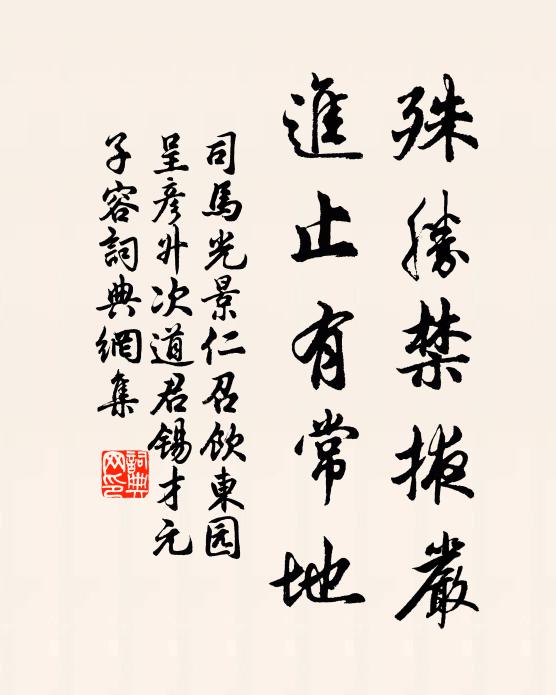 殊勝禁掖嚴
進止有常地
司馬光景仁召飲東园
呈彥升次道君錫才元
子容詞典網集
詞典
网印